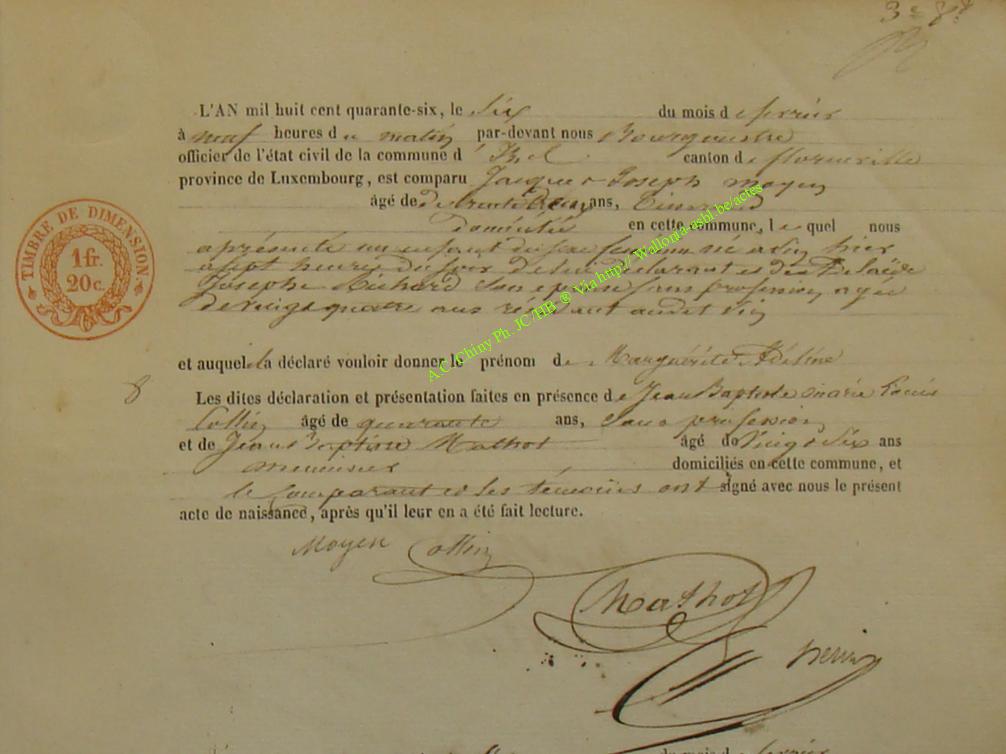 3e 8d
L'AN mil huit cent quarante-six, le Six du mois de fevrier
à neuf heures du matin par-devant nous Bourgmestre
officier de l'état civil de la commune d' Izel canton de florenville
province de Luxembourg, est comparu Jacques Joseph Moyen
âgé de trente Deux ans,
domicilié en cette commune, lequel nous
a présenté un enfant du sexe feminin né a Izel hier
a sept heures du soir de lui declarant et de Adelaïde
Josephe Richard son epouse sans profession agée
de vingt quatre ans résidant audit
et auquel il a déclaré vouloir donner le prénom de Marguérite Adeline
8
Les dites déclaration et présentation faites en présence de Jean Baptiste marie Louis
Collin âgé de quarante ans, sans profession
et de Jean Baptiste Mathot âgé de vingt Six ans
menuisier domiciliés en cette commune, et
le Comparant et les témoins ont signé avec nous le présent
acte de naissance, après qu'il leur en a été fait lecture.
Moyen Collin
Mathot
TIMBRE DE DIMENSION
1 fr.
20 c.
A.C. Chiny Ph. JC/HB ® Via http://Wallonia-asbl.be/actes
du mois de fevrier